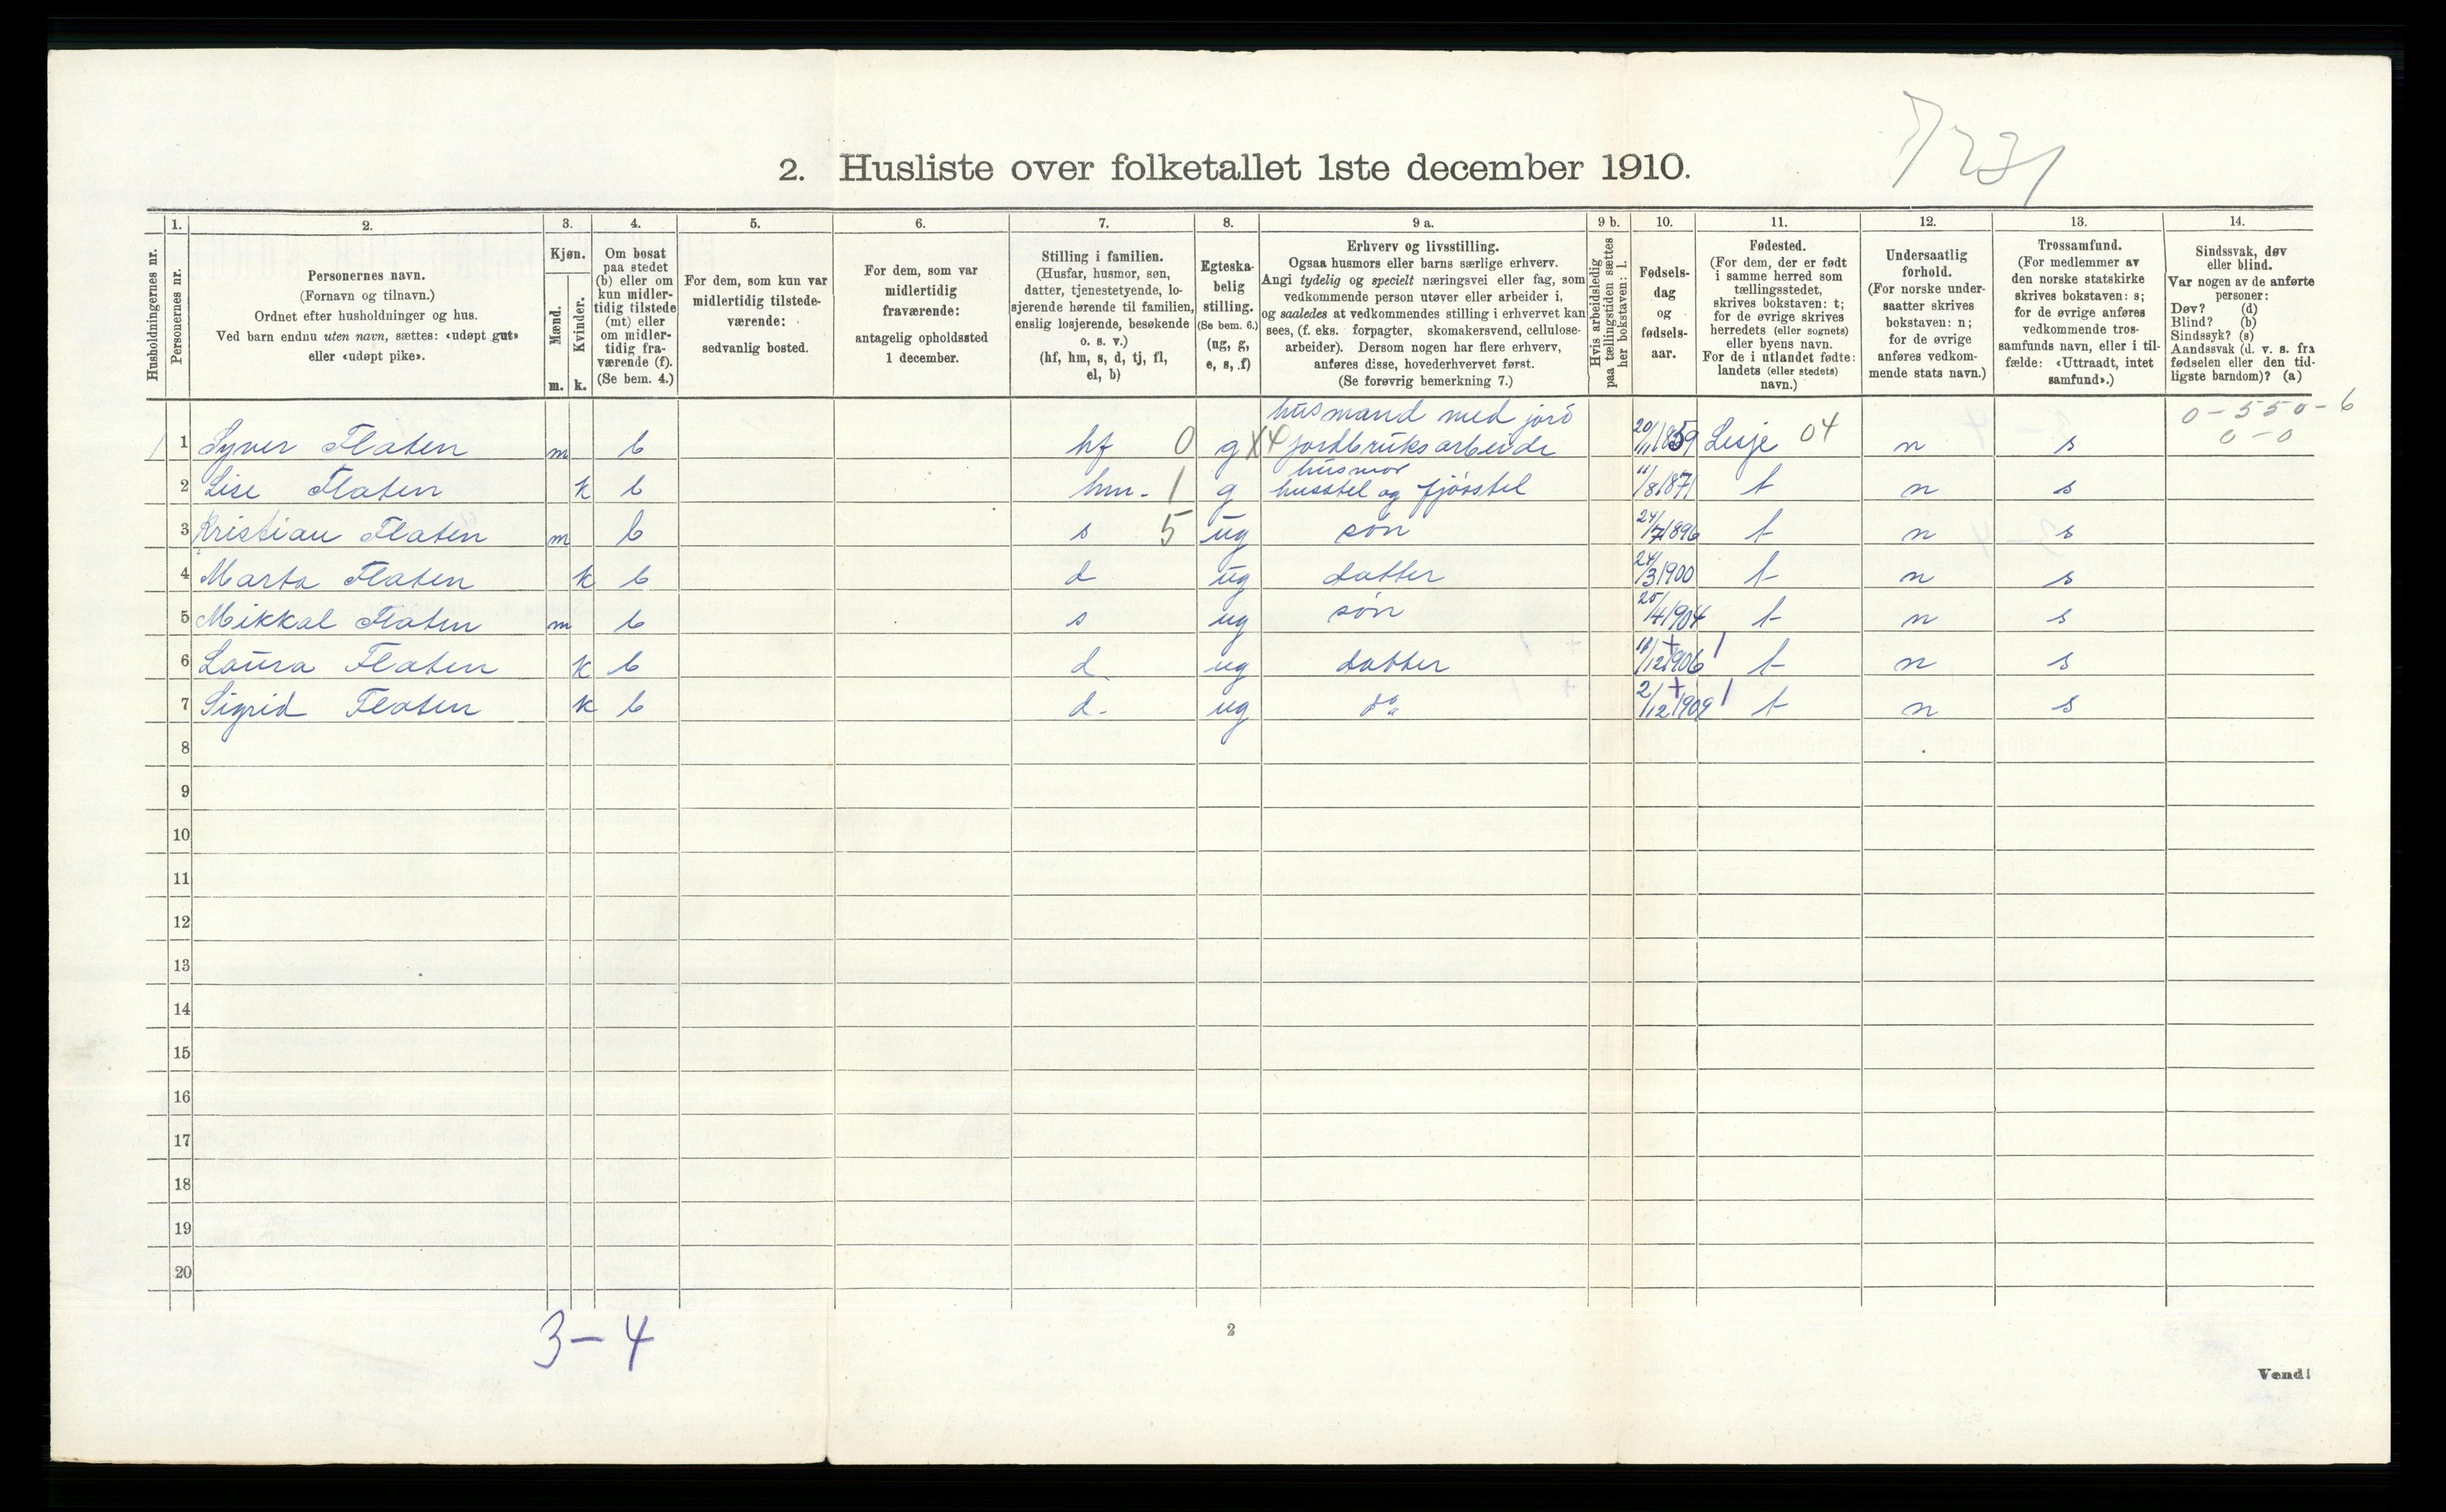 7/231
2. Husliste over folketallet 1ste december 1910.
Husholdningernes nr.
1.
Personernes nr.
2.
Personernes navn.
(Fornavn og tilnavn.)
Ordnet efter husholdninger og hus.
Ved barn endnu uten navn, sættes: «udøpt gut»
eller «udøpt pike».
3.
Kjøn.
Mænd.
m.
Kvinder.
k.
4.
Om bosat
paa stedet
(b) eller om
kun midler-
tidig tilstede
(mt) eller
om midler-
tidig fra-
værende (f).
(Se bem. 4.)
5.
For dem, som kun var
midlertidig tilstede-
værende:
sedvanlig bosted.
6.
For dem, som var
midlertidig
fraværende:
antagelig opholdssted
1 december.
7.
Stilling i familien.
(Husfar, husmor, søn,
datter, tjenestetyende, lo-
sjerende hørende til familien,
enslig losjerende, besøkende
o. s. v.)
(hf, hm, s, d, tj, fl,
el, b)
8.
Egteska-
belig
stilling.
(Se bem. 6.)
(ug, g,
e, s, f)
9 a.
Erhverv og livsstilling.
Ogsaa husmors eller barns særlige erhverv.
Angi tydelig og specielt næringsvei eller fag, som
vedkommende person utøver eller arbeider i,
og saaledes at vedkommendes stilling i erhvervet kan
sees, (f. eks. forpagter, skomakersvend, cellulose-
arbeider). Dersom nogen har flere erhverv,
anføres disse, hovederhvervet først.
(Se forøvrig bemerkning 7.)
9 b.
Hvis arbeidsledig
paa tællingstiden sættes
her bokstaven: l.
10.
Fødsels-
dag
og
fødsels-
aar.
11.
Fødested.
(For dem, der er født
i samme herred som
tællingsstedet,
skrives bokstaven: t;
for de øvrige skrives
herredets (eller sognets)
eller byens navn.
For de i utlandet fødte:
landets (eller stedets)
navn.)
12.
Undersaatlig
forhold.
(For norske under-
saatter skrives
bokstaven: n;
for de øvrige
anføres vedkom-
mende stats navn.)
13.
Trossamfund.
(For medlemmer av
den norske statskirke
skrives bokstaven: s;
for de øvrige anføres
vedkommende tros-
samfunds navn, eller i til-
fælde: «Uttraadt, intet
samfund».)
14.
Sindssvak, døv
eller blind.
Var nogen av de anførte
personer:
Døv? (d)
Blind? (b)
Sindssyk? (s)
Aandssvak (d. v. s. fra
fødselen eller den tid-
ligste barndom)? (a)
husmand med jord 0-550-6
1 1 Syver Flaten m b hf 0 g X4 jordbruksarbeide 20/11 1859 Lesje 04 n s 0-0
husmor
2 Lise Flaten k b hm. 1 g husstel og fjøsstel 11/8 1871 t n s
3 Kristian Flaten m b s 5 ug søn 24/7 1896 t n s
4 Marta Flaten k b d ug datter 24/3 1900 t n s
5 Mikkal Flaten m b s ug søn 25/4 1904 t n s
6 Laura Flaten k b d. ug datter 18/12 1906 + 1 t n s
7 Sigrid Flaten k b d. ug do 2/12 1909 + 1 t n s
8
9
10
11
12
13
14
15
16
17
18
19
20
3-4
2
Vend!